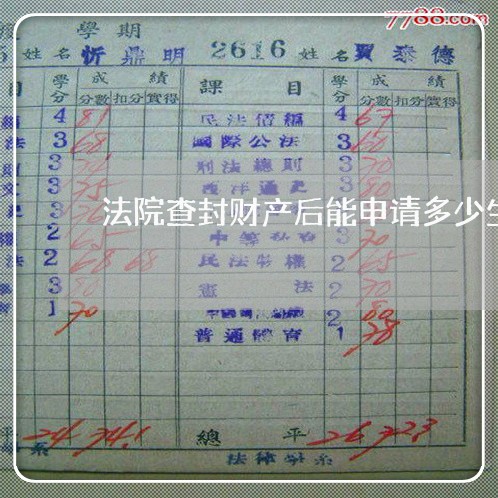 7788.com
度 學期
5 姓名 忻鼎明 2616 姓名 賈泰德
目 學分 成績 課目 學分 成績
分數 扣分 實得 分數 扣分 實得
4 81 民法債編 4 67
法 3 68 國際公法 3 60
3 刑法總則 3 70
文 3 75 西洋通史 3 80
法院查封财产后能申请多少生
2 65 3 70
法 2 68 68 民法物權 2 65
3 80 憲法 2 70
1 70 2 80
普通體育 1 78
平 24 74.1 總平 26 72.3
系 法律學系